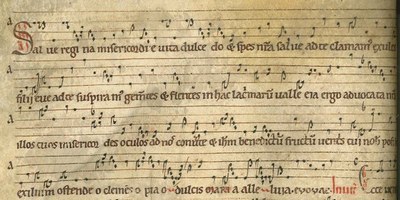 Sal ue regi na misericordi e uita dulce do & spes nr̄a sal ue ad te clamam᷒ exules
filii eue ad te suspiram᷒ gem̄tes & flentes in hac lac̄maru᷒ ualle eia ergo aduocata
illos tuos misericor des oculos ad nos & ih̄m benedictū fructū uentris tui nob᷒
exilium ostende o clemēs o pia o dulcis maria alle luia. euouae.